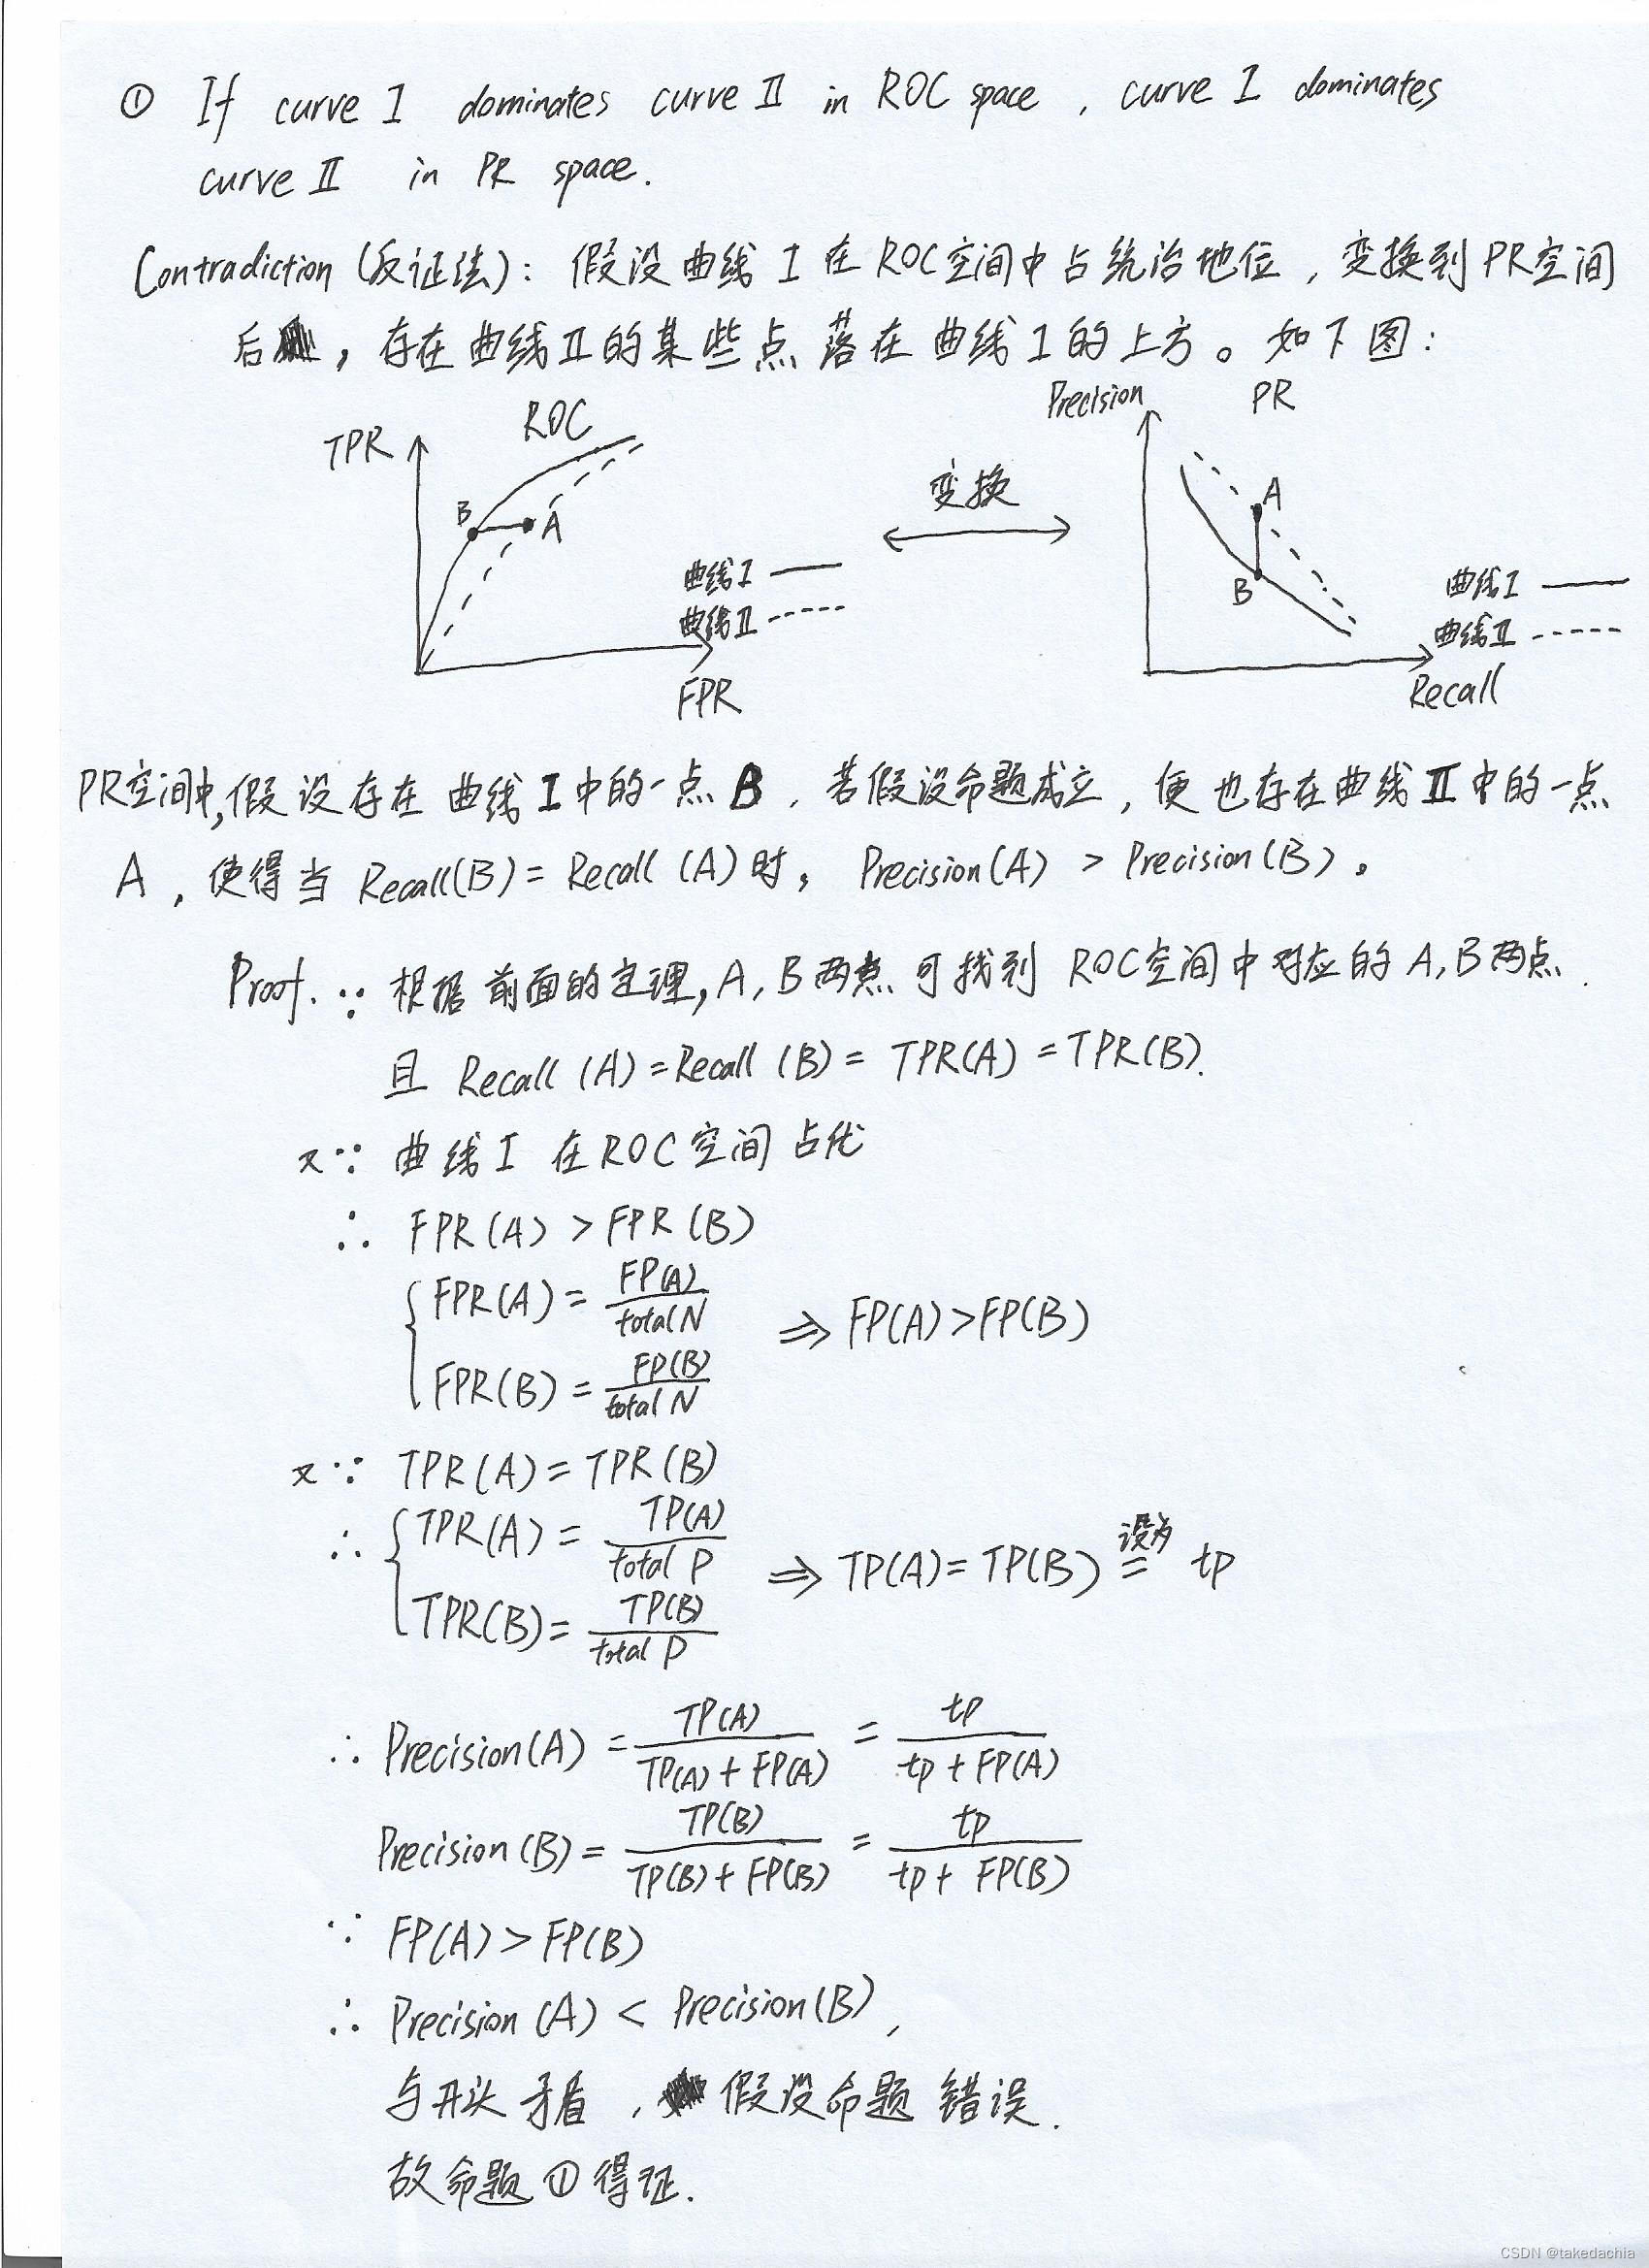 ① If curve I dominates curve II in ROC space , curve I dominates
curve II in PR space.
Contradiction (反证法): 假设曲线 I 在ROC空间中占统治地位 , 变换到PR空间
后 , 存在曲线II的某些点落在曲线I的上方。如下图:
TPR ROC
B A
曲线I
曲线II
FPR
变换
Precision PR
A
B
曲线I
曲线II
Recall
PR空间中,假设存在曲线I中的一点B , 若假设命题成立 , 便也存在曲线II中的一点
A , 使得当 Recall(B) = Recall (A)时, Precision(A) > Precision(B) 。
Proof. ∵ 根据前面的定理, A, B两点可找到 ROC空间中对应的A, B两点.
且 Recall (A) = Recall (B) = TPR(A) = TPR(B).
又∵ 曲线I 在ROC空间占优
∴ FPR(A) > FPR(B)
{ FPR(A) = FP(A) / total N
FPR(B) = FP(B) / total N ⇒ FP(A) > FP(B)
又∵ TPR(A) = TPR(B)
∴ { TPR(A) = TP(A) / total P
TPR(B) = TP(B) / total P ⇒ TP(A) = TP(B) 设为 = tp
∴ Precision(A) = TP(A) / TP(A) + FP(A) = tp / tp + FP(A)
Precision(B) = TP(B) / TP(B) + FP(B) = tp / tp + FP(B)
∵ FP(A) > FP(B)
∴ Precision (A) < Precision(B) ,
与开头矛盾 , 假设命题错误.
故命题①得证.
CSDN @takedachia